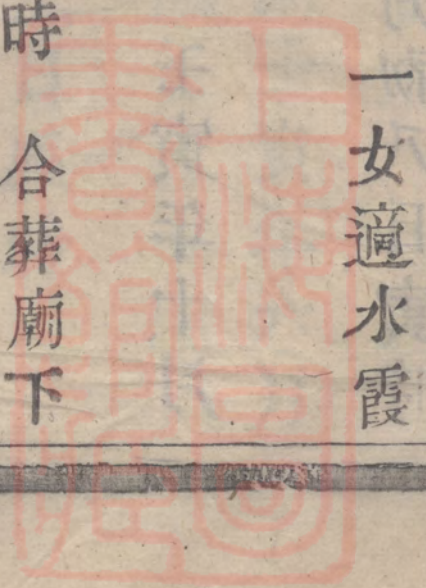 一女適水霞
時　合葬廟下
上海圖書館藏